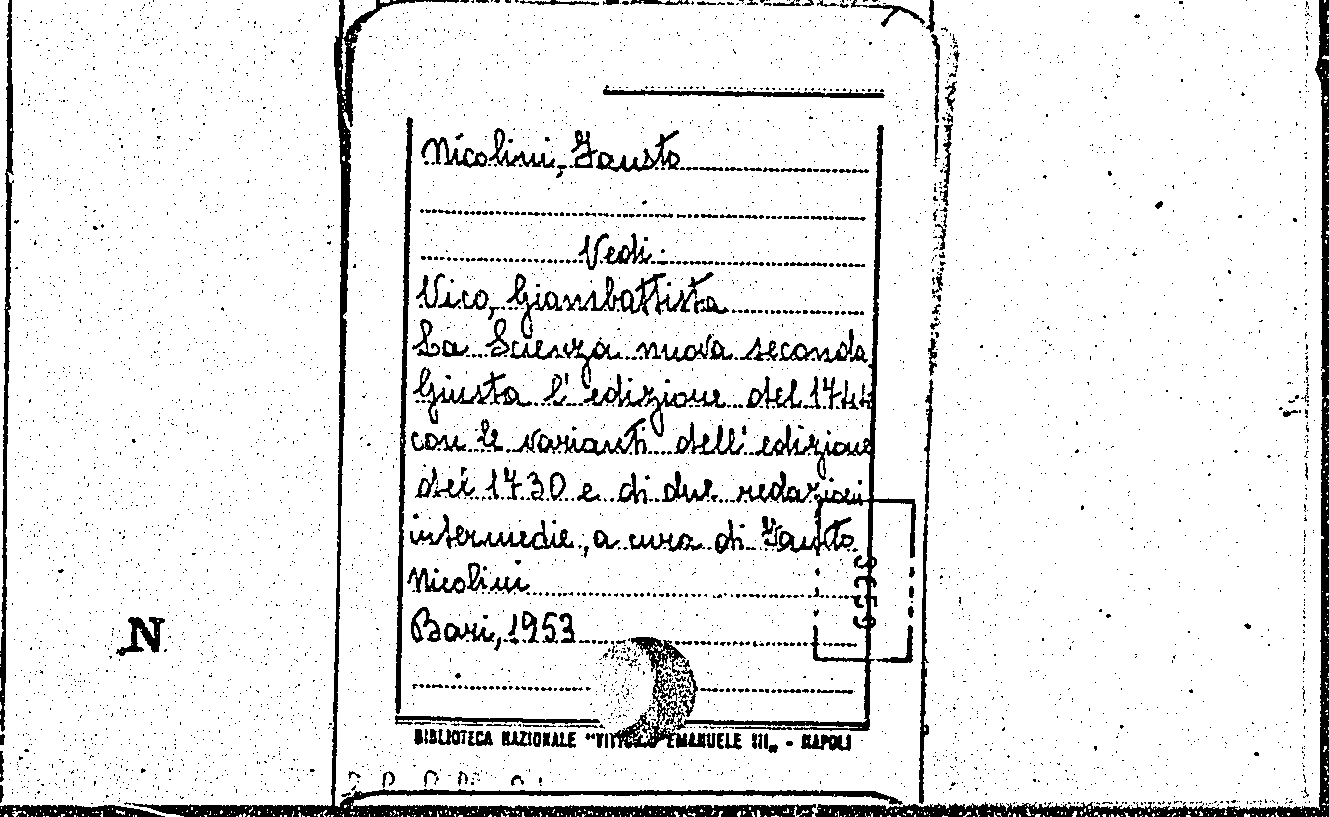 Nicolini, Fausto
Vedi:
Vico, Giambattista
La Scienza nuova seconda
Giusta l'edizione del 1744
con le varianti dell'edizione
del 1730 e di due redazioni
intermedie, a cura di Fausto
Nicolini
Bari, 1953
3659
N
BIBLIOTECA NAZIONALE "VITTORIO EMANUELE III„ - NAPOLI